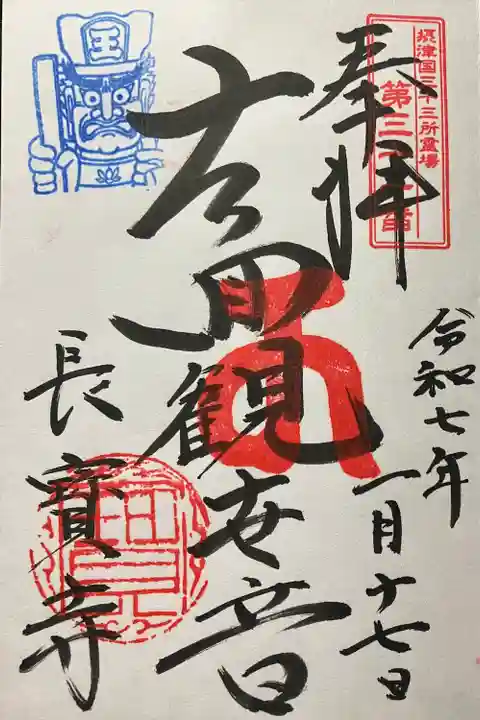 摂津国三十三所霊場
第三
奉拝
令和七年
一月十七日
十一面観世音
長寳寺
王